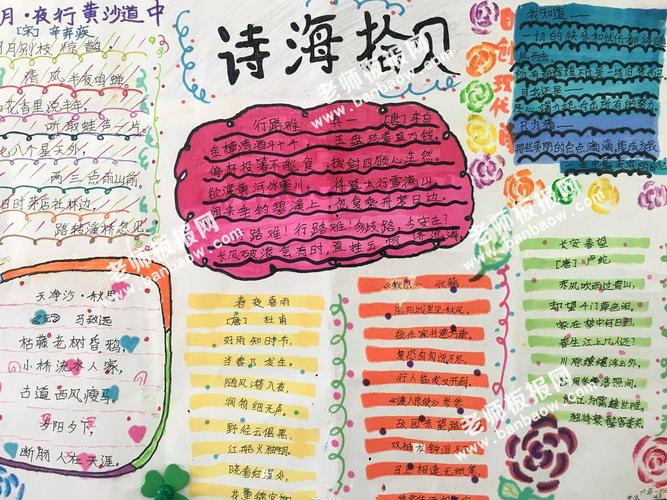 月·夜行黄沙道中
[宋] 辛弃疾
月别枝惊鹊，
清风半夜鸣蝉。
花香里说丰年，
听取蛙声一片。
七八个星天外，
两三点雨山前。
旧时茅店社林边，
路转溪桥忽见。
天净沙·秋思
马致远
枯藤老树昏鸦，
小桥流水人家，
古道西风瘦马。
夕阳西下，
断肠人在天涯。
诗海拾贝
行路难 其一 [唐] 李白
金樽清酒斗十千 玉盘珍羞直万钱
停杯投箸不能食 拔剑四顾心茫然
欲渡黄河冰塞川 将登太行雪满山
闲来垂钓碧溪上 忽复乘舟梦日边
行路难！行路难！多歧路，今安在？
长风破浪会有时，直挂云帆济沧海
春夜喜雨
[唐] 杜甫
好雨知时节，
当春乃发生。
随风潜入夜，
润物细无声。
野径云俱黑，
江船火独明。
晓看红湿处，
花重锦官城
《秋思》 张籍
洛阳城里见秋风，
欲作家书意万重。
复恐匆匆说不尽，
行人临发又开封。
《逢入京使》 岑参
故园东望路
双袖龙钟泪
马上相逢无纸笔
自创现代诗
我知道——
只为着——
长安春望
[唐] 卢纶
东风吹雨过青山，
却望千门草色闲。
家在梦中何日到，
春生江上几人还？
川原缭绕浮云外，
宫阙参差落照间。
谁念为儒逢世难，
独将衰鬓客秦关。
老师板报网
www.banbaow.com
老师板报网
www.banbaow.com
老师板报网
www.banbaow.com
老师板报网
www.banbaow.com